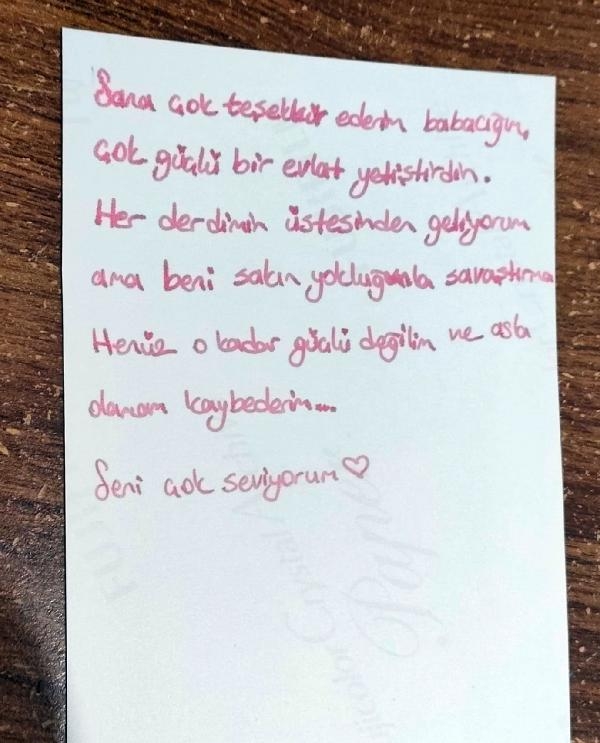 Sana çok teşekkür ederim babacığım,
çok güçlü bir evlat yetiştirdin.
Her derdimin üstesinden geliyorum
ama beni sakın yokluğunla savaştırma
Henüz o kadar güçlü değilim ne asla
olamam kaybederim...
Seni çok seviyorum♡